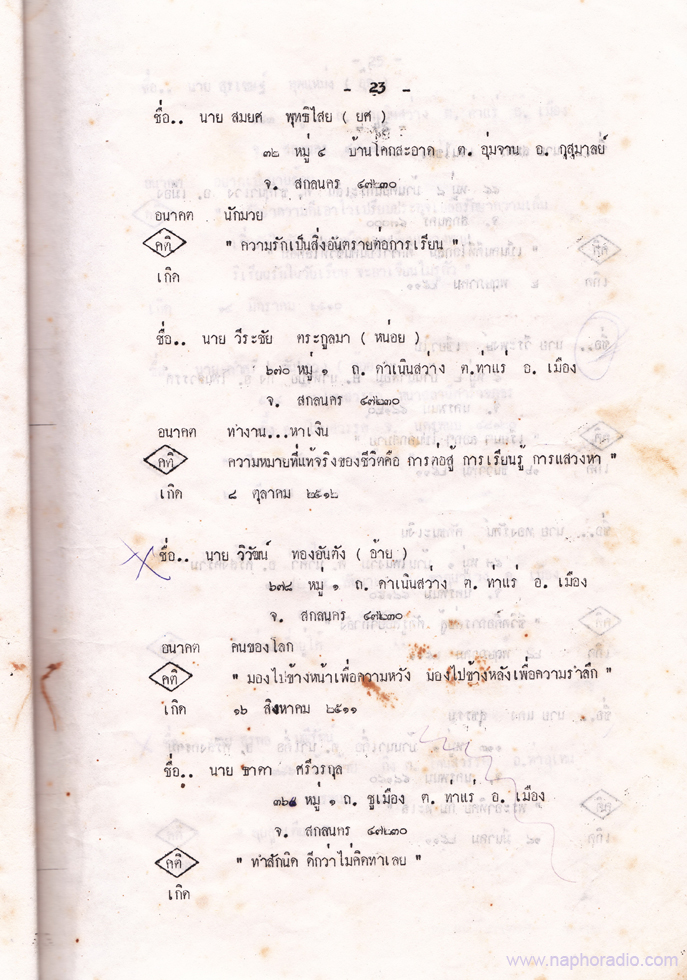 - 23 -
ชื่อ.. นาย สมยศ พุทธิไสย ( ยศ )
๓๒ หมู่ ๔ บ้านโคกสะอาด ต. อุ่มจาน อ. กุสุมาลย์
จ. สกลนคร ๔๗๒๓๐
อนาคต นักมวย
คติ " ความรักเป็นสิ่งอันตรายต่อการเรียน "
เกิด
ชื่อ.. นาย วีระชัย ตระกูลมา ( หน่อย )
๖๗๐ หมู่ ๑ ถ. ดำเนินสว่าง ต.ท่าแร่ อ. เมือง
จ. สกลนคร ๔๗๒๓๐
อนาคต ทำงาน...หาเงิน
คติ ความหมายที่แท้จริงของชีวิตคือ การต่อสู้ การเรียนรู้ การแสวงหา "
เกิด ๘ ตุลาคม ๒๕๑๒
ชื่อ.. นาย วิวัฒน์ ทองอันตัง ( อ้าย )
๖๗๘ หมู่ ๑ ถ. ดำเนินสว่าง ต. ท่าแร่ อ. เมือง
จ. สกลนคร ๔๗๒๓๐
อนาคต คนของโลก
คติ " มองไปข้างหน้าเพื่อความหวัง มองไปข้างหลังเพื่อความรำลึก "
เกิด ๑๖ สิงหาคม ๒๕๑๑
ชื่อ.. นาย ธาดา ศรีวรกุล
หมู่ ๑ ถ. ชูเมือง ต. ท่าแร่ อ. เมือง
จ. สกลนคร ๔๗๒๓๐
คติ " ทำสักนิด ดีกว่าไม่คิดทำเลย "
เกิด
www.naphoradio.com